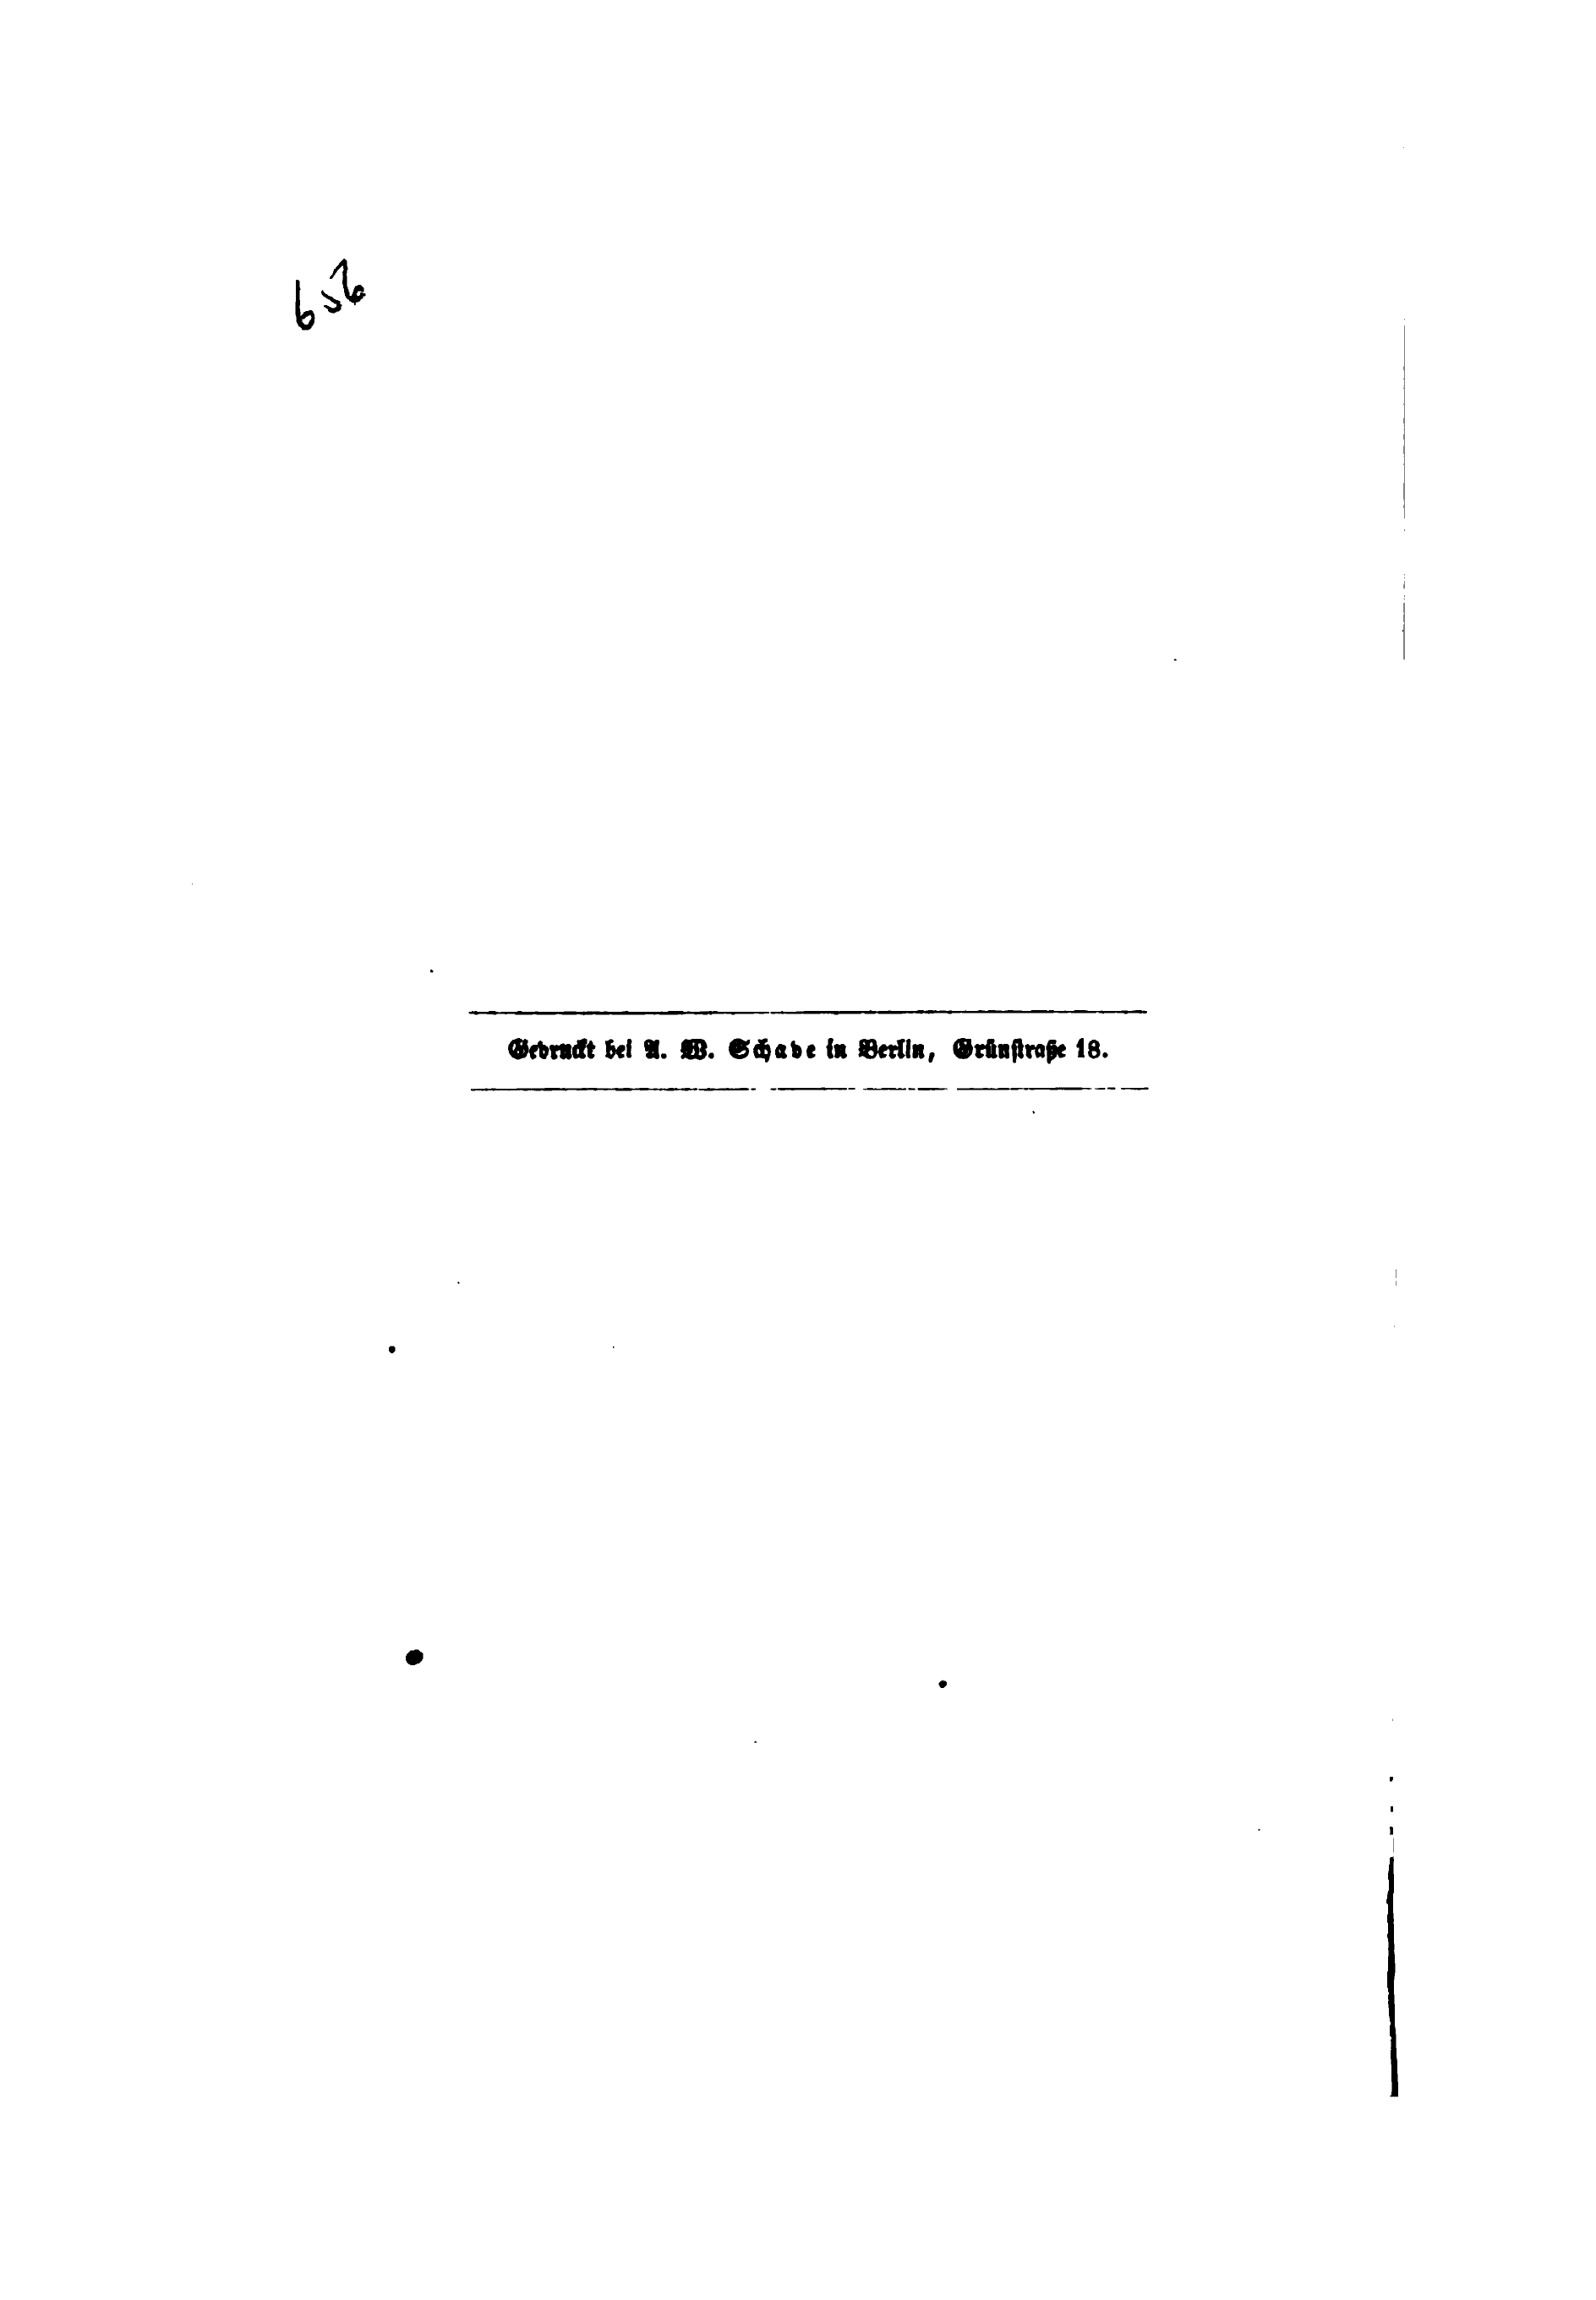 Gedruckt bei A. W. Schade in Berlin, Grünstraße 18.